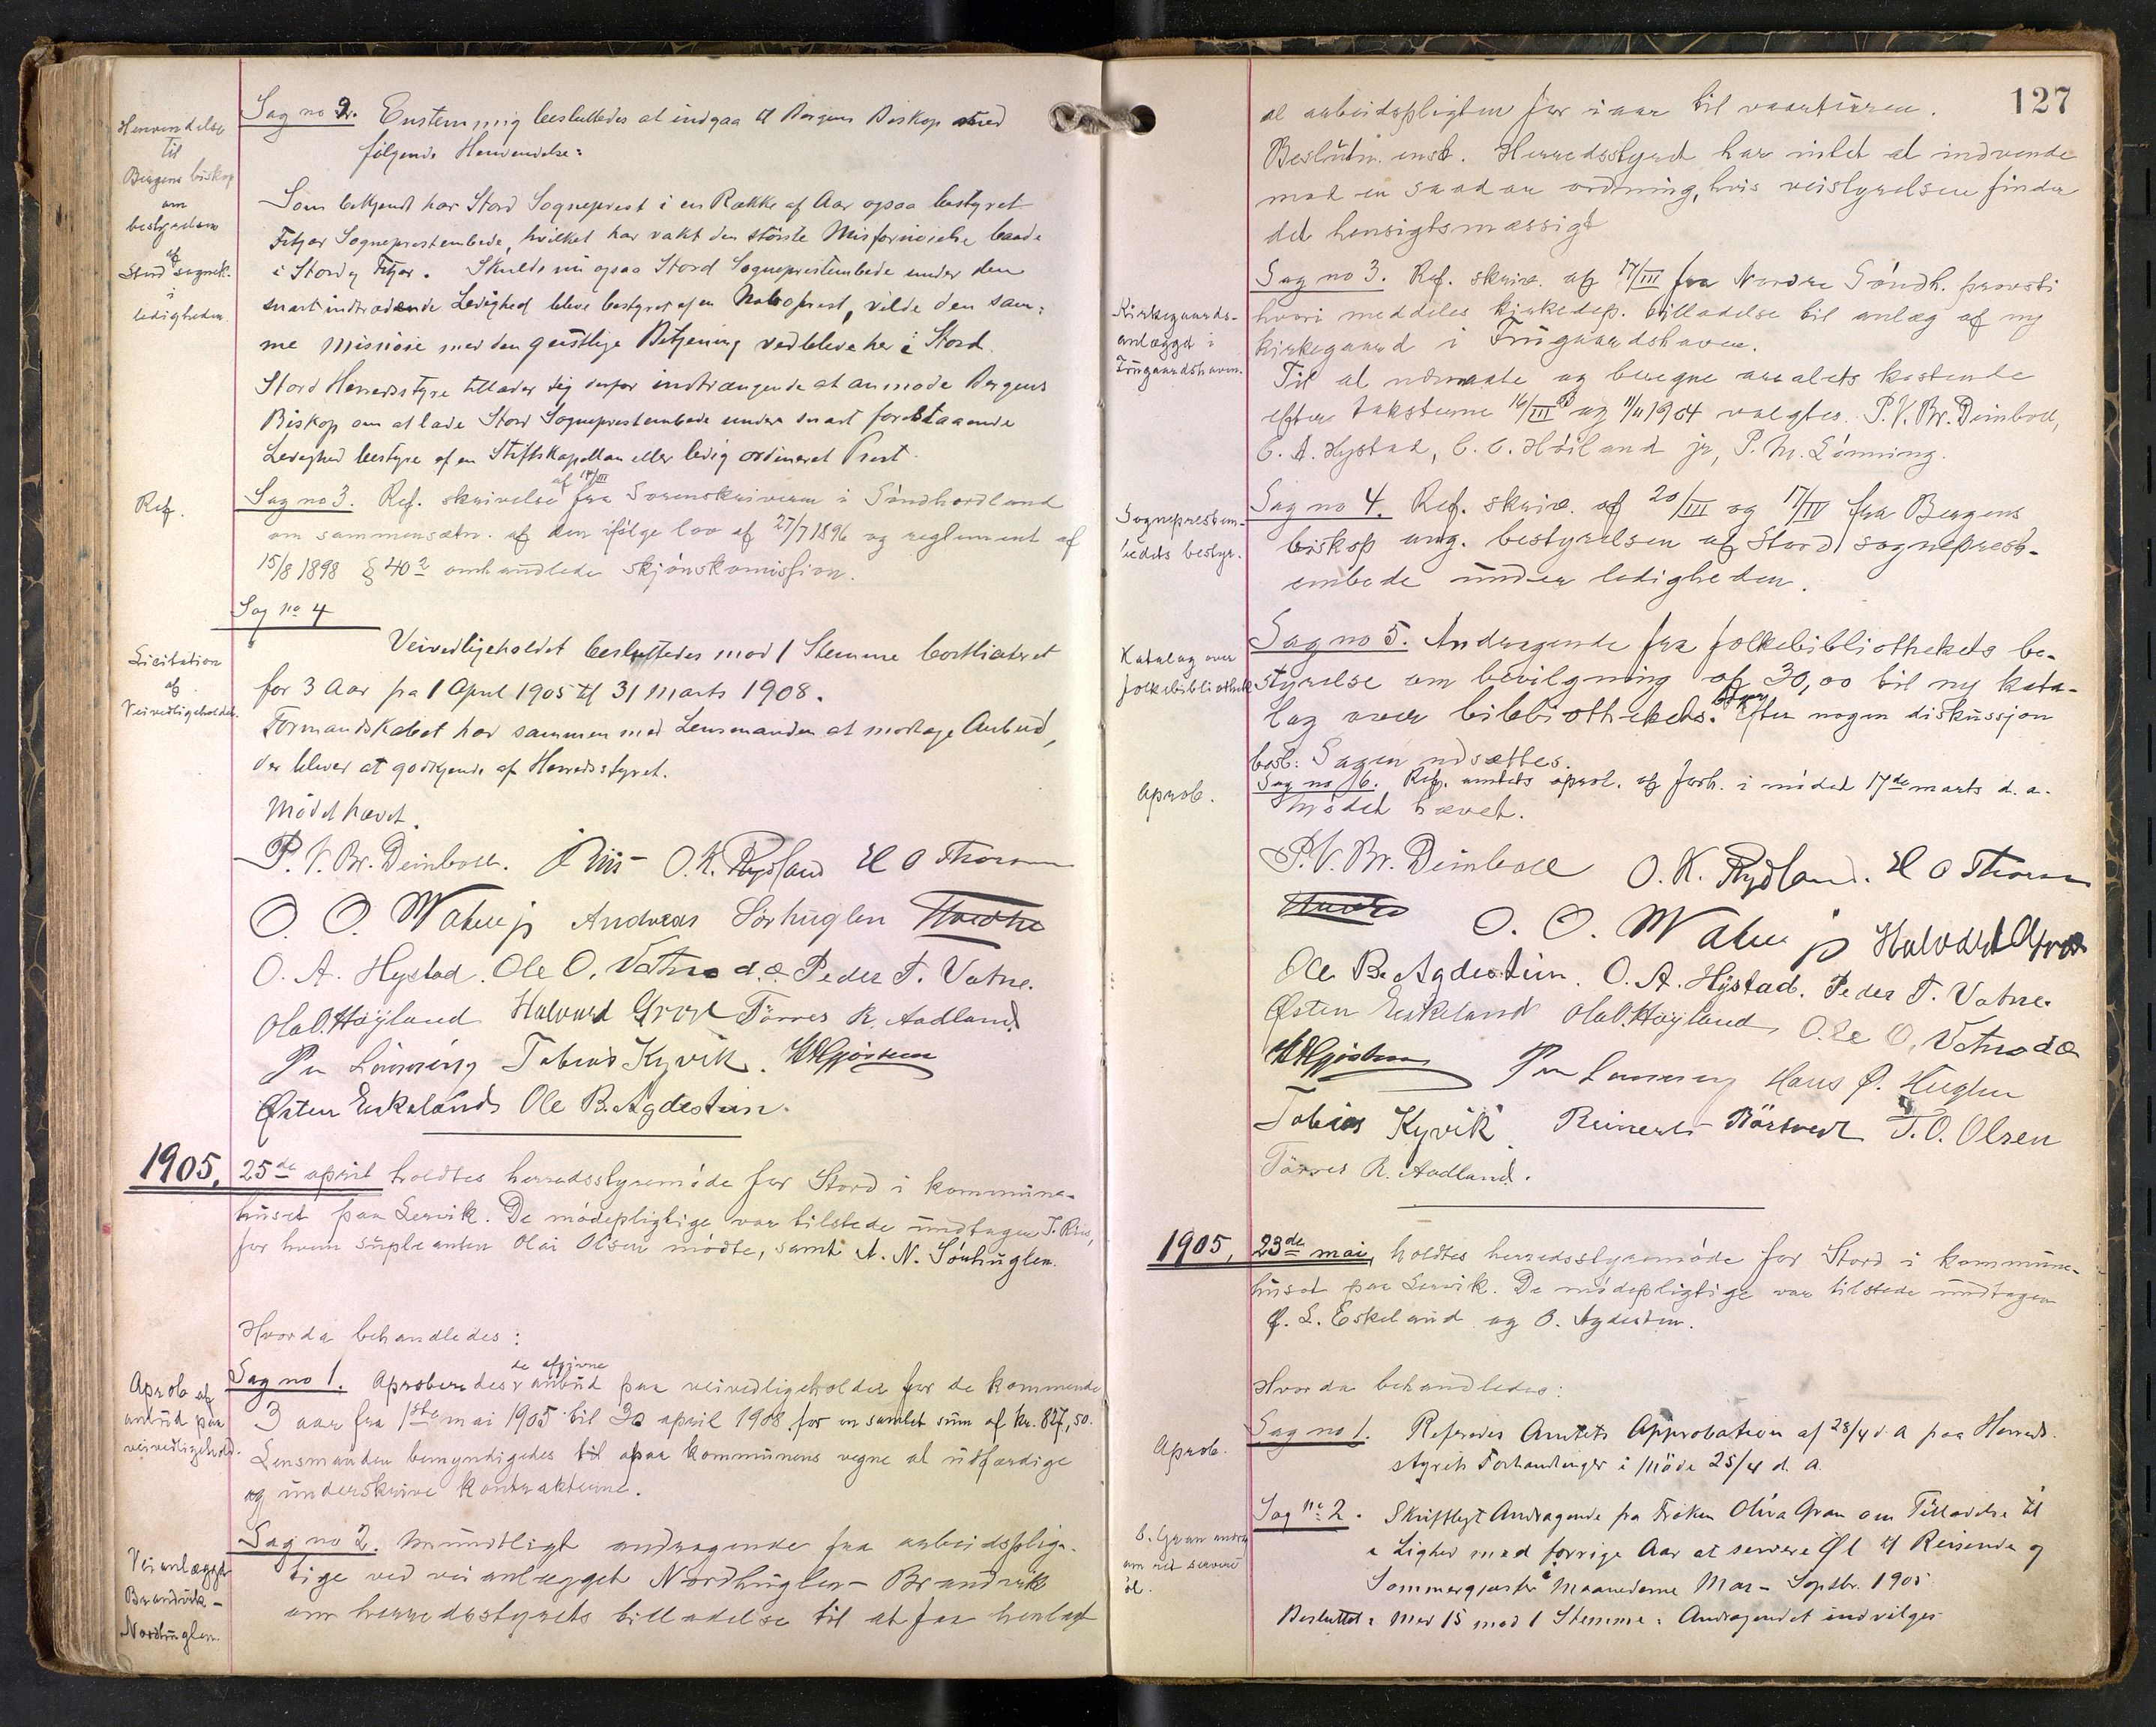 Henvendelse
til
Bergens biskop
om
bestyrelsen
af
Stord sognek.
i
ledigheden.
Sag no 2. Enstemmig besluttedes at indgaa til Bergens Biskop med
følgende Henvendelse:
Som bekjendt har Stord Sogneprest i en Række af Aar ogsaa bestyret
Fitjar Sogneprestembede, hvilket har vakt den største Misfornøielse baade
i Stord og Fitjar. Skulde nu ogsaa Stord Sogneprestembede under den
snart indtrædende Ledighed bleve bestyret af en Naboprest, vilde den sam-
me Misnøie med den geistlige Betjening vedbleve her i Stord.
Stord Herredsstyre tillader sig derfor indtrængende at anmode Bergens
Biskop om at lade Stord Sogneprestembede under snart forestaaende
Ledighed bestyre af en Stiftskapellan eller ledig ordineret Prest.
Ref.
Sag no 3. Ref. skrivelse af 14/III fra Sorenskriveren i Søndhordland
om sammensætn. af den ifølge lov af 27/7 1896 og reglement af
15/8 1898 § 40 2 omhandlede skjønskomission.
Sag no 4
Licitation
af
Veivedligeholdet.
Veivedligeholdet besluttedes mod 1 Stemme bortliciteret
for 3 Aar fra 1 April 1905 til 31 Marts 1908.
Formandskabet har sammen med Lensmanden at modtage Anbud,
der bliver at godkjende af Herredsstyret.
Mødet hævet.
P. V. Br. Deinboll. J Riis O. K. Rydland H O Thorsen
O. O. Watne jr Andreas Sørhuglen
O. A. Hystad. Ole O. Vatne d.æ. Peder T. Vatne.
Ola O. Høyland Halvard Grov Tørres R. Aadland
Pm Lønning Tobias Kyvik.
Østen Eskeland Ole B. Agdestein.
1905, 25de april holdtes herredsstyremøde for Stord i kommune-
huset paa Lervik. De mødepligtige var tilstede undtagen J. Riis,
for hvem supleanten Olai Olsen mødte, samt A. N. Sørhuglen.
Hvorda behandledes:
Aprob af
anbud paa
veivedligehold.
Sag no 1. Aproberedes de afgivne anbud paa veivedligeholdet for de kommende
3 aar fra 1ste mai 1905 til 30 april 1908 for en samlet sum af kr. 827,50.
Lensmanden bemyndigedes til paa kommunens vegne at udfærdige
og underskrive kontrakterne.
Veianlægget
Brandvik-
Nordhuglen.
Sag no 2. Mundtligt andragende fra arbeidsplig-
tige ved veianlægget Nordhuglen - Brandvik
om herredsstyrets tilladelse til at faa henlagt
127
al arbeidspligten for iaar til vaartiiren.
Beslutn. enst. Herredsstyret har intet at indvende
mod en saadan ordning, hvis veistyrelsen finder
det hensigtsmæssigt
Kirkegaards-
anlægget i
Frugaardshaven.
Sag no 3. Ref. skriv. af 17/III fra Nordre Søndh. provsti
hvori meddeles kirkedep. tilladelse til anlæg af ny
kirkegaard i Frugaardshaven.
Til at udmaale og beregne arealets kostende
efter taksterne 16/III 03 og 11/11 1904 valgtes P. V. Br. Deinboll,
O. A. Hystad, O. O. Høiland jr, P. M. Lønning.
Sogneprestem-
bedets bestyr.
Sag no 4. Ref. skriv. af 20/III og 17/IV fra Bergens
biskop ang. bestyrelsen af Stord sogneprest-
embede under ledigheden.
Katalog over
folkebibliothek
Sag no 5. Andragende fra folkebibliothekets be-
styrelse om bevilgning af 30,00 til ny kata-
log over bibliothekets bøger. Efter nogen diskussjon
besl: Sagen udsættes.
Aprob.
Sag no 6. Ref. amtets aprob. af forh. i mødet 17de marts d. a.
Mødet hævet.
P. V. Br. Deinboll O. K. Rydland. H O Thorsen
O. O. Watne jr Halvard Grov
Ole B. Agdestein. O. A. Hystad. Peder T. Vatne.
Østen Eskeland Ola O. Høyland, Ole O. Vatne d.æ.
Pm Lønning Hans Ø. Huglen
Tobias Kyvik. Reinert Børtveit T. O. Olsen
Tørres R. Aadland.
1905, 23de mai, holdtes herredsstyremøde for Stord i kommune-
huset paa Lervik. De mødepligtige var tilstede undtagen
Ø. L. Eskeland og O. Agdestein.
Hvorda behandledes:
Aprob.
Sag no 1. Referedes Amtets Approbation af 28/4 d. A paa Herreds-
styrets Forhandlinger i Møde 25/4 d. A.
O. Gran andr.
om ret servere
øl.
Sag no 2. Skriftlygt Andragende fra Frøken Oliva Gran om Tilladelse til
i Lighed med forrige Aar at servere Øl til Reisende og
Sommergjæster i Maanederne Mai - Septbr. 1905
Besluttet: Med 15 mod 1 Stemme: Andragendet indvilges